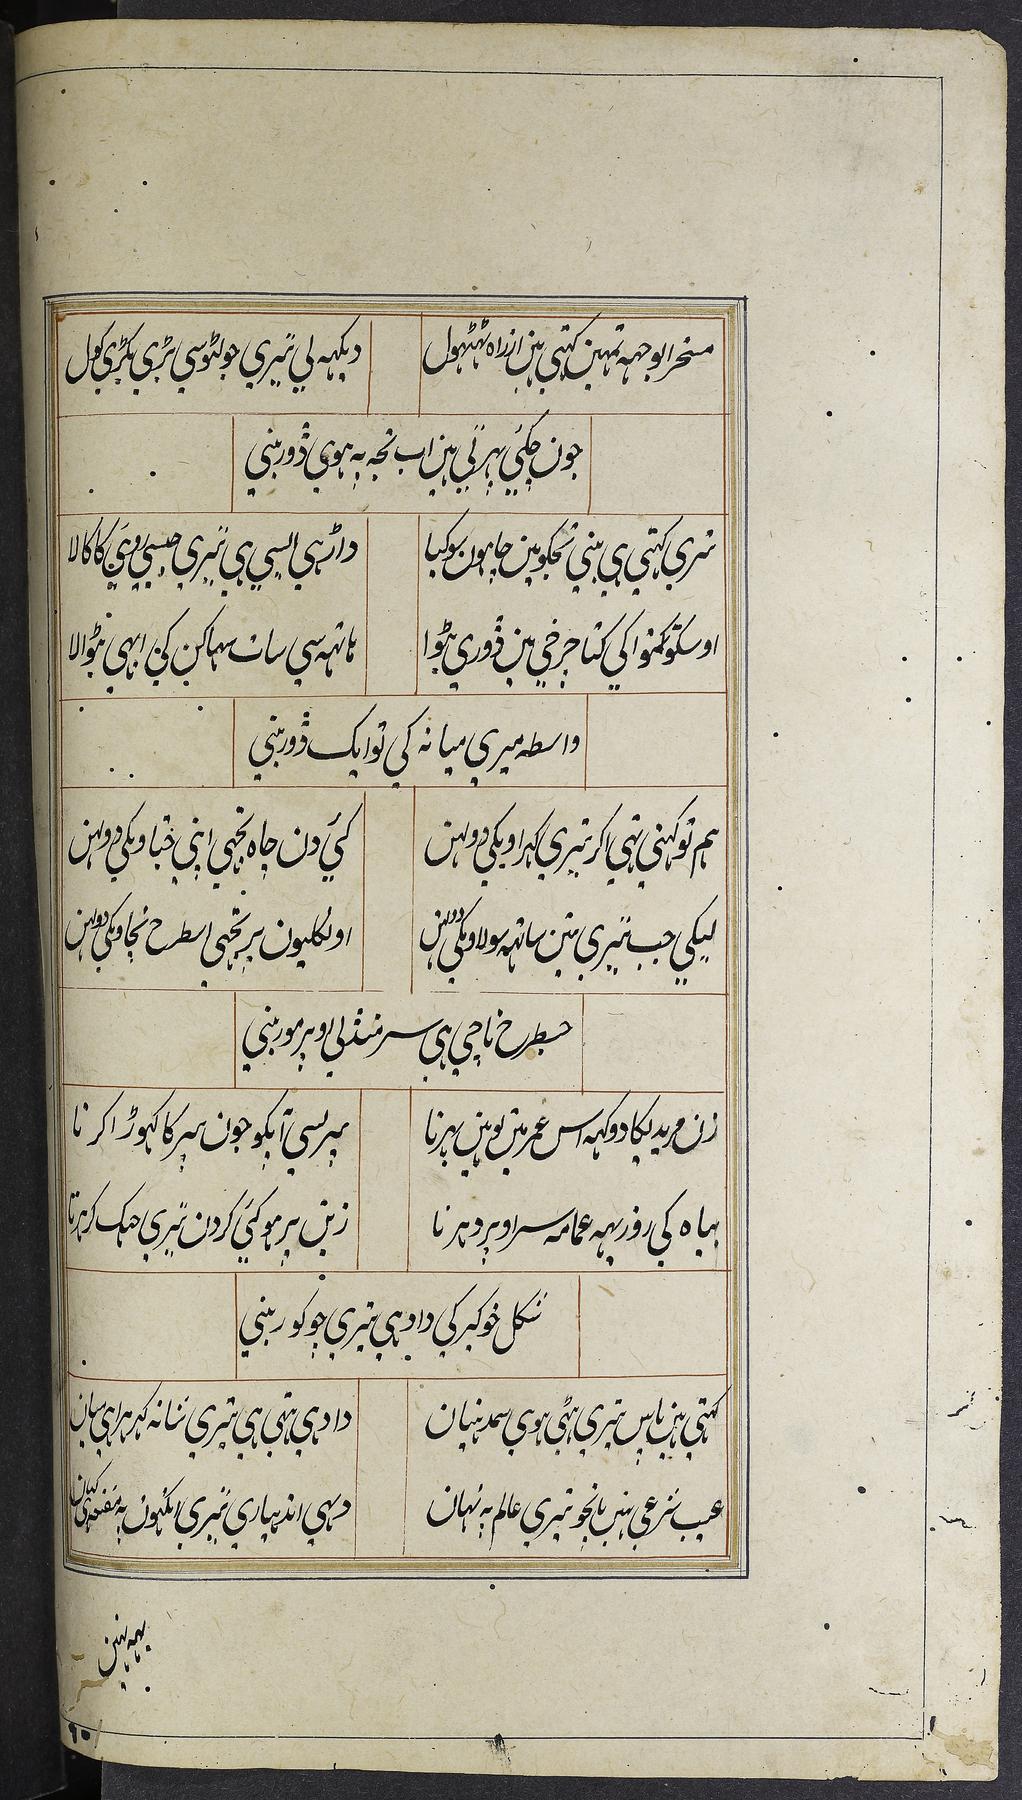 مسخرا بوجهه تمهین کهتی هین از راه ٹهٹهول
دیکهه لی تیری جو لٹوسی بڑی پکڑی کول
جون چکئی پهرتی هین اب تجهه په هوی ڈور بنی
تیری کهتی هی بنی تجکو مین چاهون
داڑهی ایسی هی تیری جیسی روئی کا کالا
اوسکو کی کتا چرخی مین ڈوری بٹوا
هاتهه سی سات سهاکن کی ابهی بٹوالا
واسطه میری میانه کی تو ایک ڈور بنی
هم تو کهتی تهی اکر تیری کهر اویکی دولهن
کئی دن چاه تجهی اپنی جتاویکی دولهن
لیکی جب تیری تئین ساتهه سولاویکی دولهن
اونکلیون پر تجهی اسطرح نچاویکی دولهن
جسطرح ناچی هی سر منڈلی اوپر مور بنی
زن مرید یکا دوکهه اس عمر مین یونهین بهرنا
پیر سی آپکو جون پیر کا کهوڑا کرنا
بیاه کی روز یهه عمامه سر اوپر دهرنا
زین پر موکئی کردن تیری جهک کر
شکل خوکیر کی دادهی تیری چوکور بنی
کهتی هین پاس تیری بیٹی هوی سمدنیان
دادی تیری
عیب شرعی هین پانچو تیری عالم په نهان
دهی اندهیاری تیری انکهون په
یهه نهین